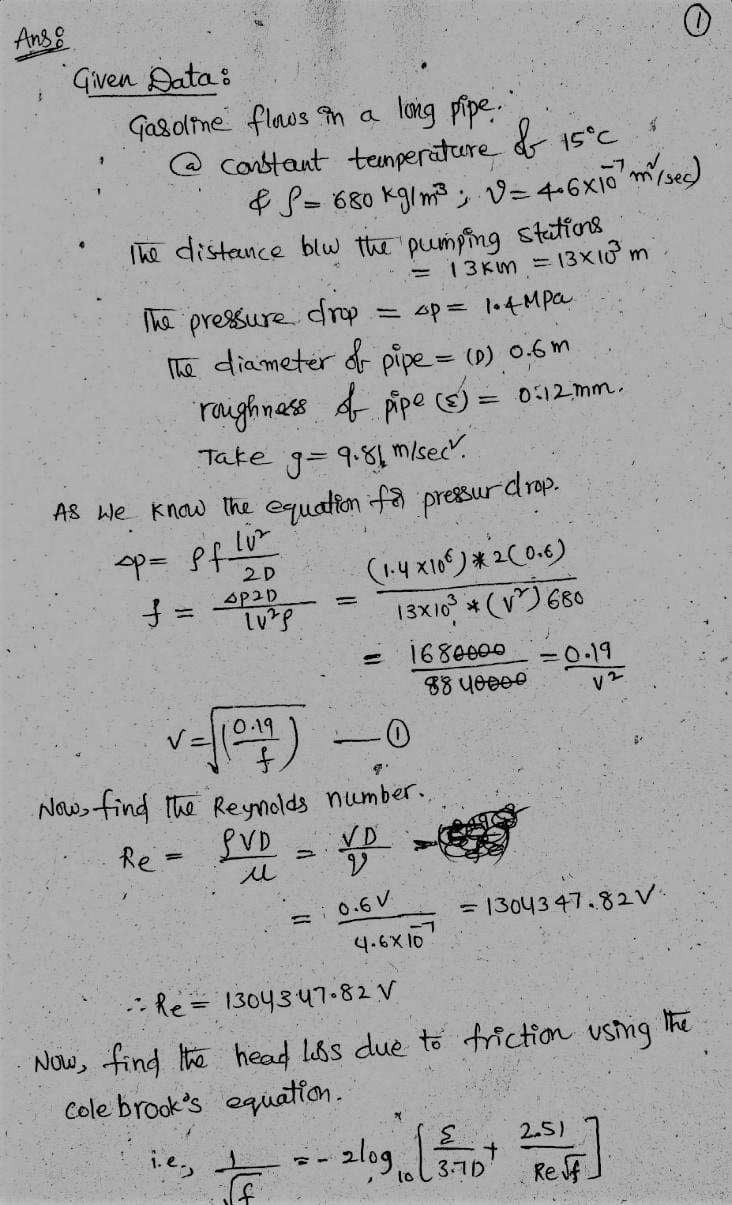 ①
Ans:
Given Data:
Gasoline flows in a long pipe.
@ constant temperature of 15°C
& ρ = 680 kg/m³ ; ν = 4.6×10⁻⁷ m²/sec)
The distance b/w the pumping stations
= 13 km = 13×10³ m
The pressure drop = Δp = 1.4 MPa
The diameter of pipe = (D) 0.6 m
roughness of pipe (ε) = 0.12 mm.
Take g = 9.81 m/sec².
As we know the equation for pressur drop.
Δp = ρf lv²/2D
f = Δp2D/lv²ρ = (1.4×10⁶)*2(0.6)/13×10³*(v²)680
= 1680000/8840000 = 0.19/v²
v = √(0.19/f) — ①
Now, find the Reynolds number.
Re = ρVD/μ = VD/ν =
= 0.6V/4.6×10⁻⁷ = 1304347.82V.
∴ Re = 1304347.82 V
Now, find the head loss due to friction using the
colebrook's equation.
i.e., 1/√f = -2log₁₀[ε/3.7D + 2.51/Re√f]